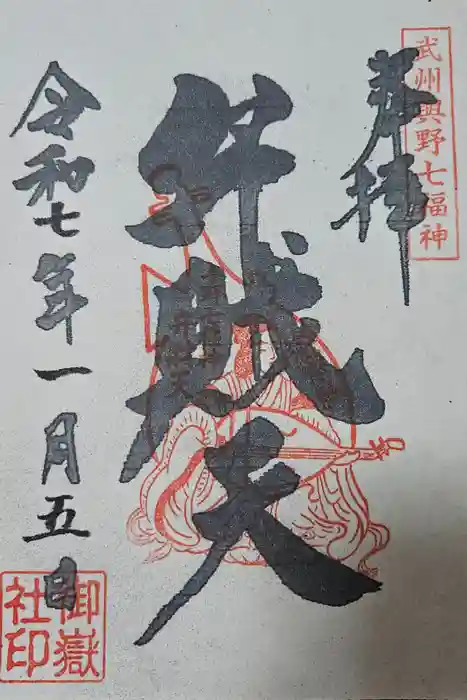 武州與野七福神
奉拝
弁財天
令和七年一月五日
御嶽
社印